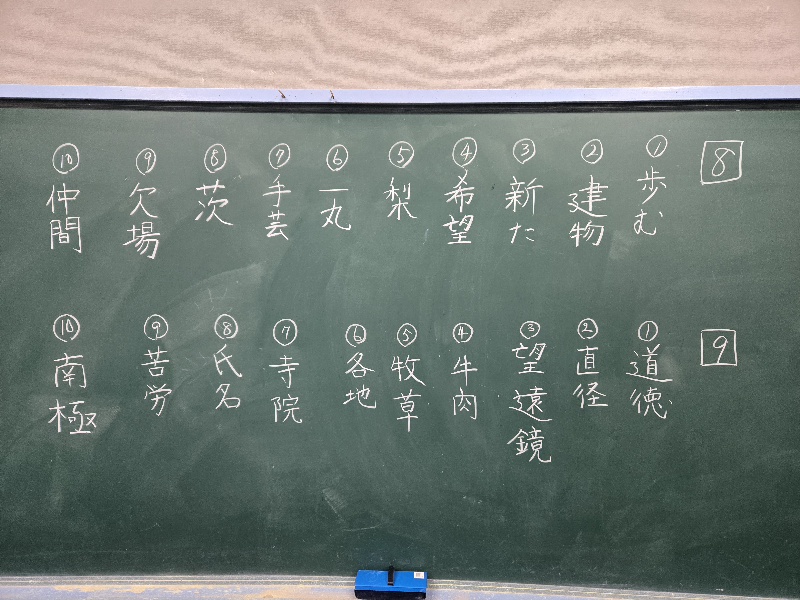 8
①歩む
②建物
③新た
④希望
⑤梨
⑥一丸
⑦手芸
⑧茨
⑨欠場
⑩仲間
9
①道徳
②直径
③望遠鏡
④牛肉
⑤牧草
⑥各地
⑦寺院
⑧氏名
⑨苦労
⑩南極